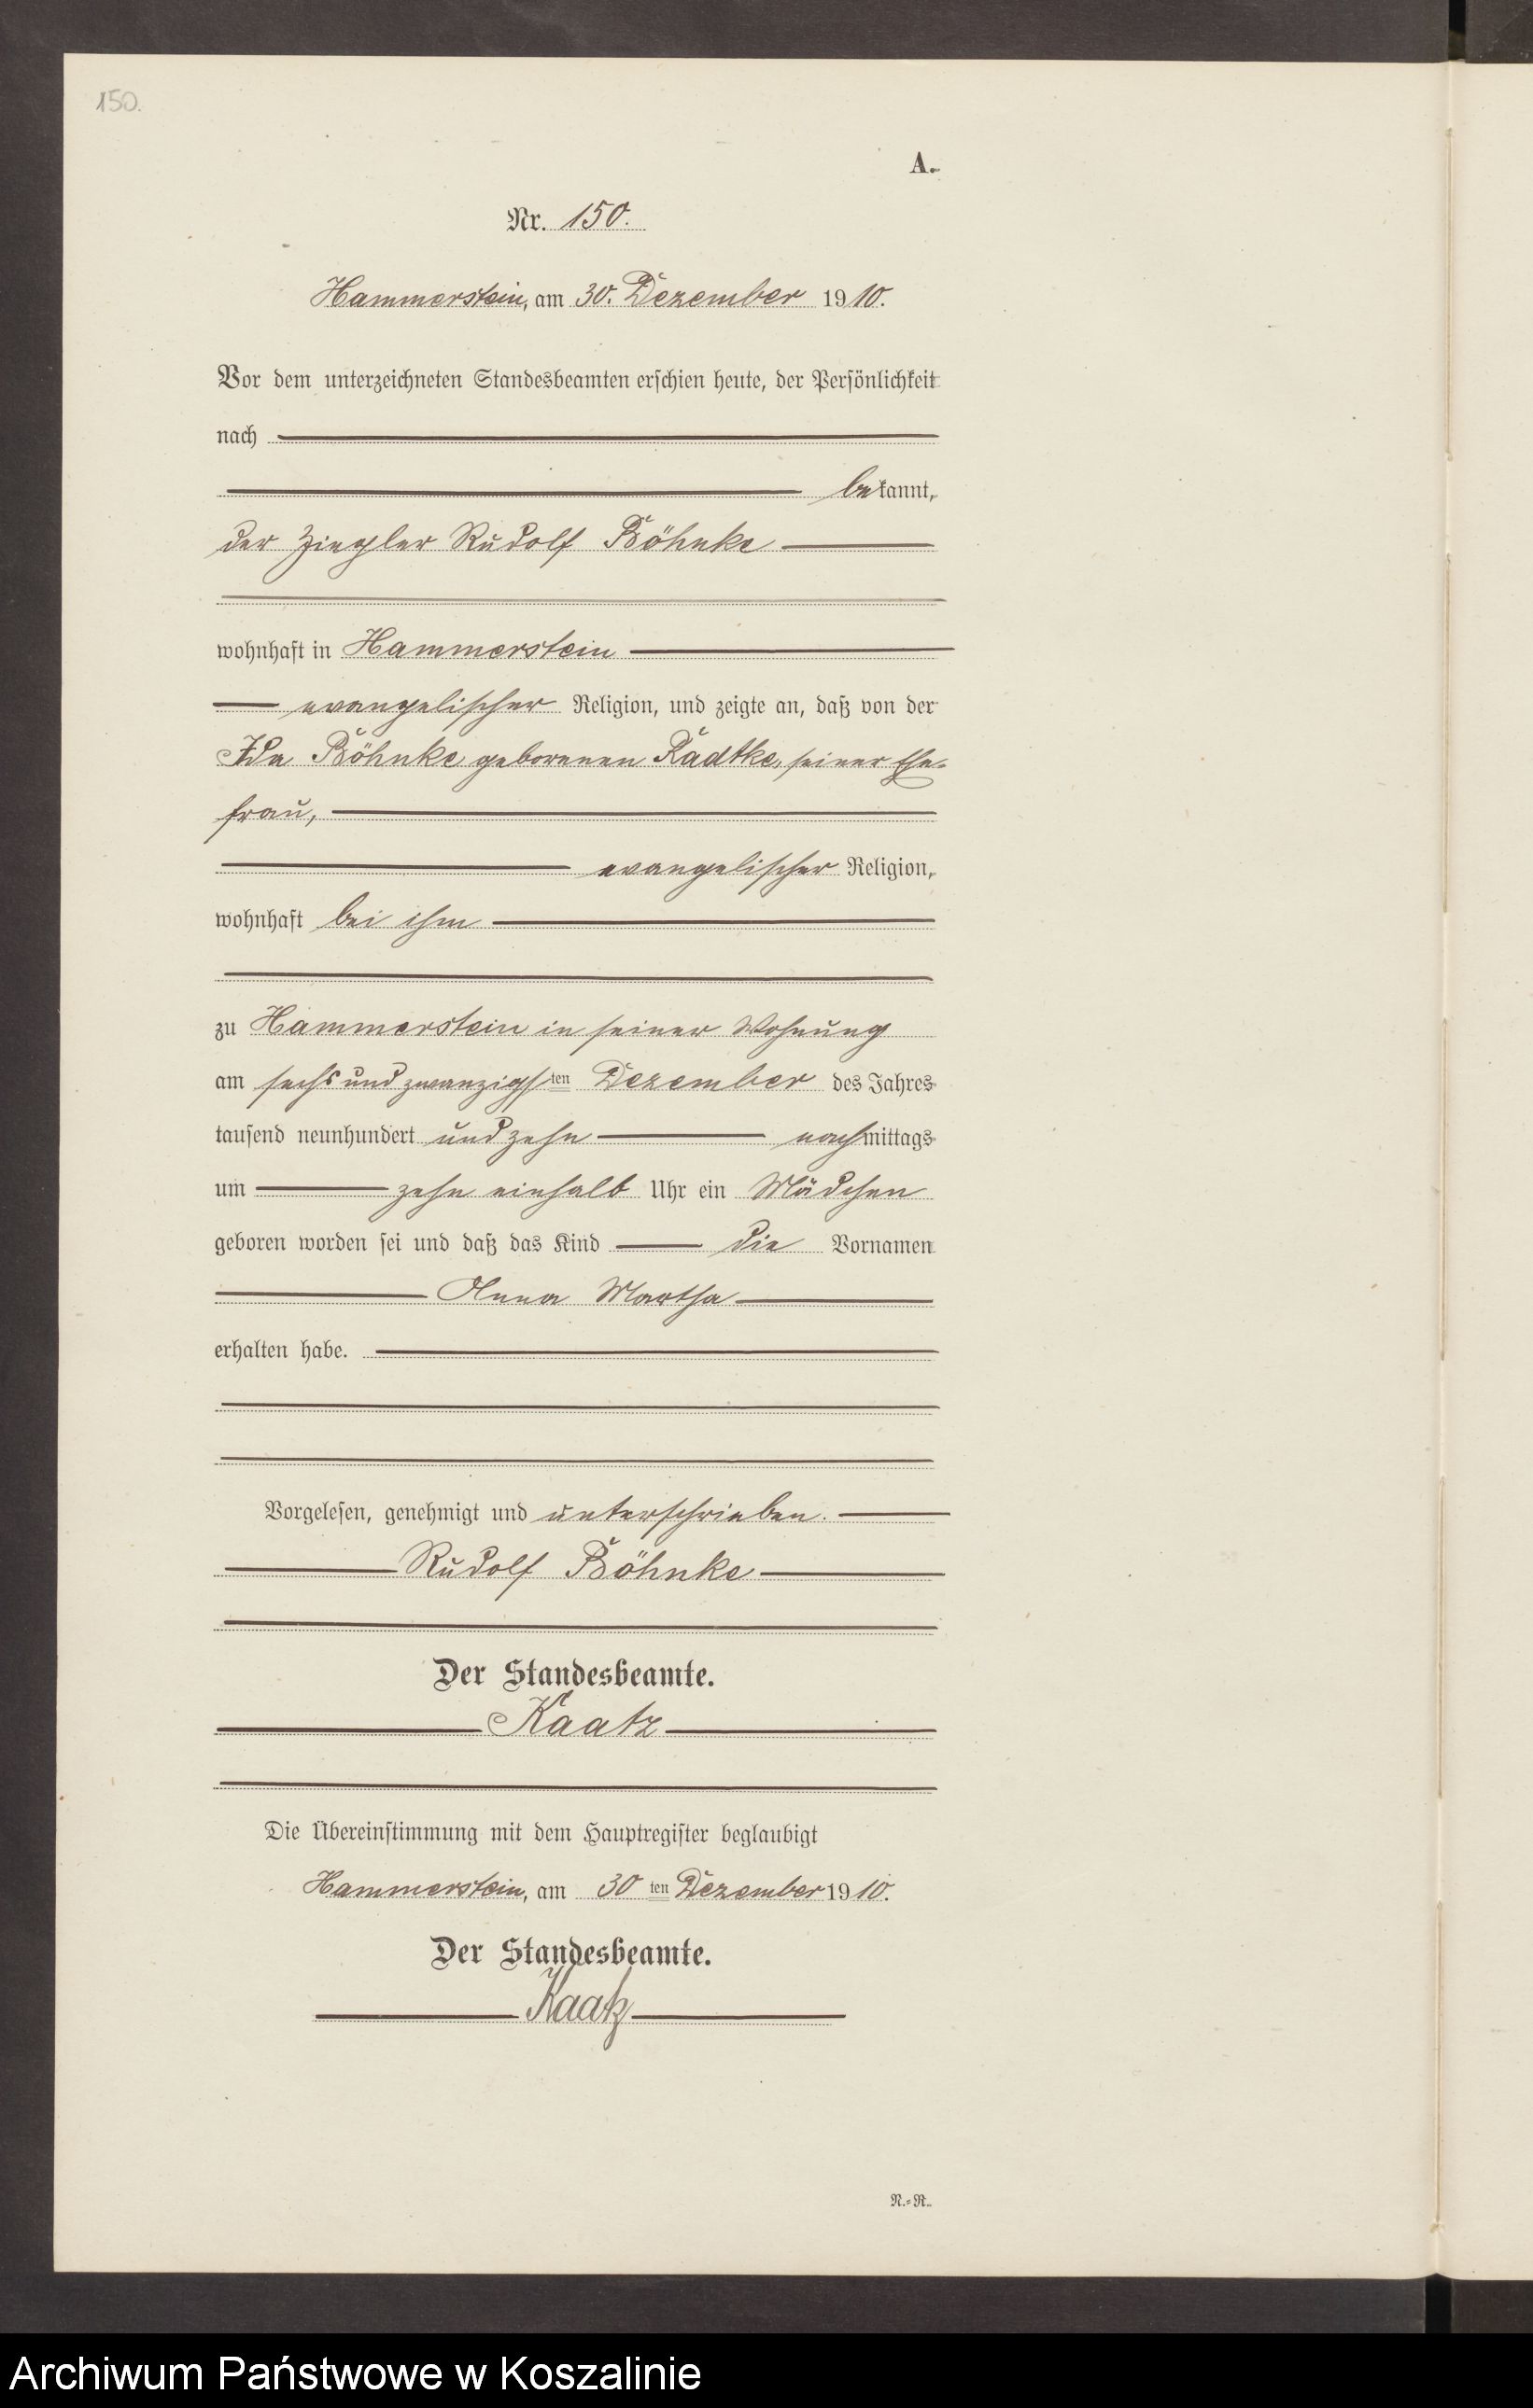 150.
A.
Nr. 150.
Hammerstein, am 30. Dezember 1910.
Vor dem unterzeichneten Standesbeamten erschien heute, der Persönlichkeit
nach
bekannt,
der Ziegler Rudolf Böhnke
wohnhaft in Hammerstein
evangelischer Religion, und zeigte an, daß von der
Ida Böhnke geborenen Radtke, seiner Ehe-
frau,
evangelischer Religion,
wohnhaft bei ihm
zu Hammerstein in seiner Wohnung
am sechs und zwanzigsten Dezember des Jahres
tausend neunhundert und zehn nachmittags
um zehn einhalb Uhr ein Mädchen
geboren worden sei und daß das Kind die Vornamen
Anna Martha
erhalten habe.
Vorgelesen, genehmigt und unterschrieben.
Rudolf Böhnke
Der Standesbeamte.
Kaatz
Die Übereinstimmung mit dem Hauptregister beglaubigt
Hammerstein, am 30ten Dezember 1910.
Der Standesbeamte.
Kaatz
N.-R.
Archiwum Państwowe w Koszalinie